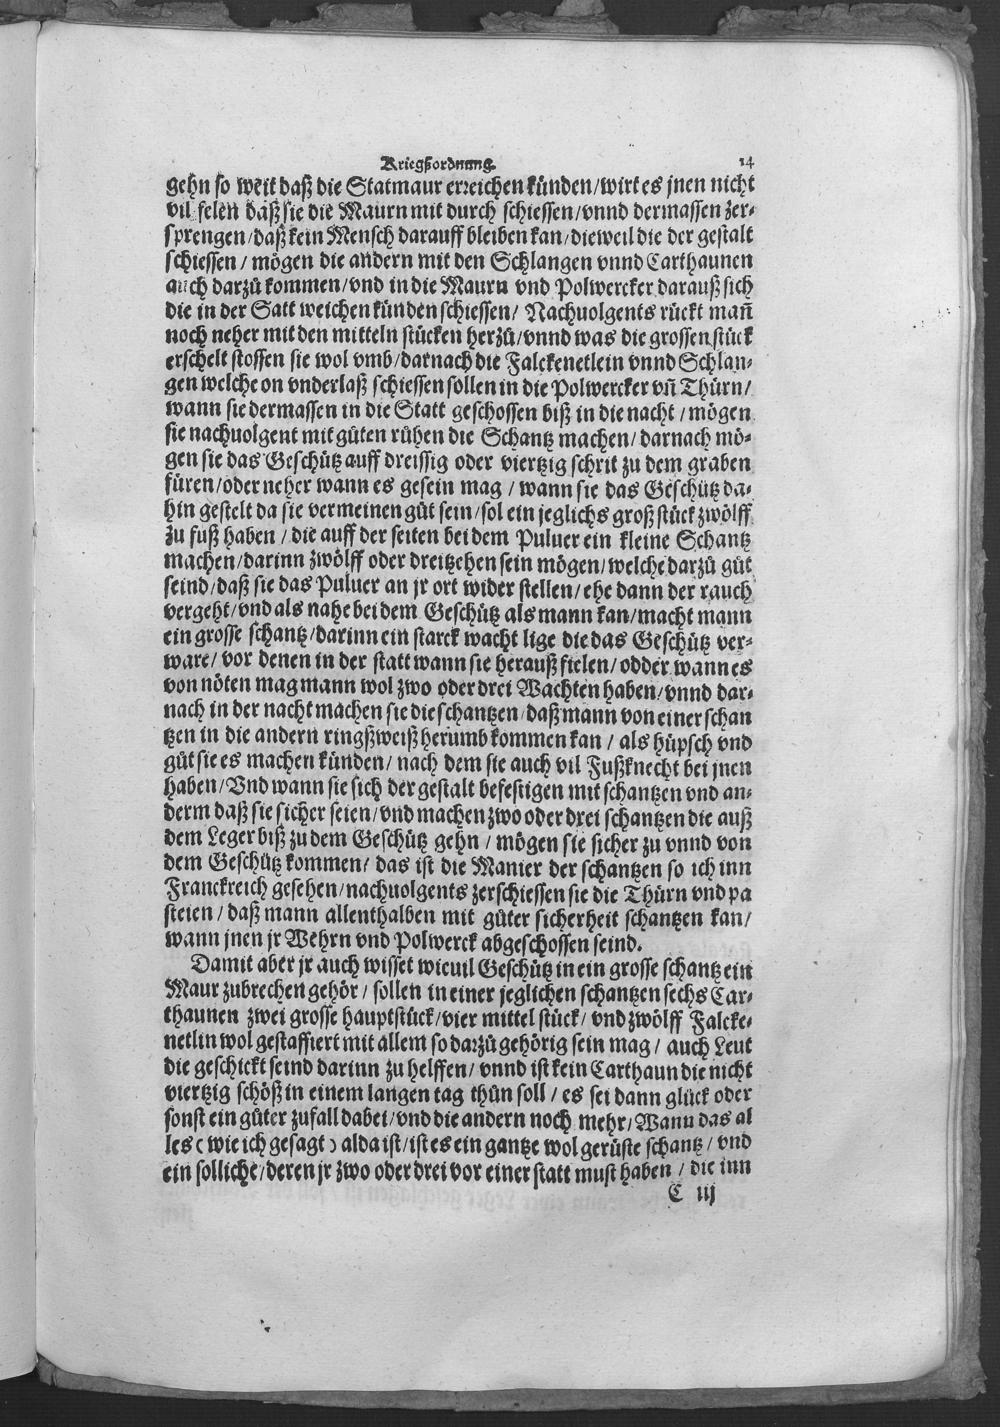 Kriegßordnung. 14
gehn so weit daß die Statmaur erreichen künden/wirt es jnen nicht
vil felen daß sie die Maurn mit durch schiessen/vnnd dermassen zer-
sprengen/daß kein Mensch darauff bleiben kan/dieweil die der gestalt
schiessen/ mögen die andern mit den Schlangen vnnd Carthaunen
auch darzů kommen/vnd in die Maurn vnd Polwercker darauß sich
die in der Satt weichen künden schiessen/ Nachuolgents rückt mañ
noch neher mit den mitteln stücken herzů/vnnd was die grossen stück
erschelt stossen sie wol vmb/darnach die Falckenetlein vnnd Schlan-
gen welche on vnderlaß schiessen sollen in die Polwercker vñ Thürn/
wann sie dermassen in die Statt geschossen biß in die nacht/mögen
sie nachuolgent mit gůten rühen die Schantz machen/darnach mö-
gen sie das Geschütz auff dreissig oder viertzig schrit zu dem graben
füren/oder neher wann es gesein mag/wann sie das Geschütz da-
hin gestelt da sie vermeinen gůt sein/sol ein jeglichs groß stück zwölff
zu fuß haben/die auff der seiten bei dem Puluer ein kleine Schantz
machen/darinn zwölff oder dreitzehen sein mögen/welche darzů gůt
seind/daß sie das Puluer an jr ort wider stellen/ehe dann der rauch
vergeht/vnd als nahe bei dem Geschütz als mann kan/macht mann
ein grosse schantz/darinn ein starck wacht lige die das Geschütz ver-
ware/vor denen in der statt wann sie herauß fielen/odder wann es
von nöten mag mann wol zwo oder drei Wachten haben/vnnd dar-
nach in der nacht machen sie die schantzen/daß mann von einer schan
tzen in die andern ringßweiß herumb kommen kan/als hüpsch vnd
gůt sie es machen künden/nach dem sie auch vil Fußknecht bei jnen
haben/Vnd wann sie sich der gestalt befestigen mit schantzen vnd an-
derm daß sie sicher seien/vnd machen zwo oder drei schantzen die auß
dem Leger biß zu dem Geschütz gehn/mögen sie sicher zu vnnd von
dem Geschütz kommen/das ist die Manier der schantzen so ich inn
Franckreich gesehen/nachuolgents zerschiessen sie die Thürn vnd pa
steien/daß mann allenthalben mit gůter sicherheit schantzen kan/
wann jnen jr Wehrn vnd Polwerck abgeschossen seind.
Damit aber jr auch wisset wieuil Geschütz in ein grosse schantz ein
Maur zubrechen gehör/sollen in einer jeglichen schantzen sechs Car-
thaunen zwei grosse hauptstück/vier mittel stück/vnd zwölff Falcke-
netlin wol gestaffiert mit allem so darzů gehörig sein mag/auch Leut
die geschickt seind darinn zu helffen/vnnd ist kein Carthaun die nicht
viertzig schöß in einem langen tag thůn soll/es sei dann glück oder
sonst ein gůter zufall dabei/vnd die andern noch mehr/Wann das al
les (wie ich gesagt) alda ist/ist es ein gantze wol gerüste schantz/vnd
ein solliche/deren jr zwo oder drei vor einer statt must haben/die inn
C iij